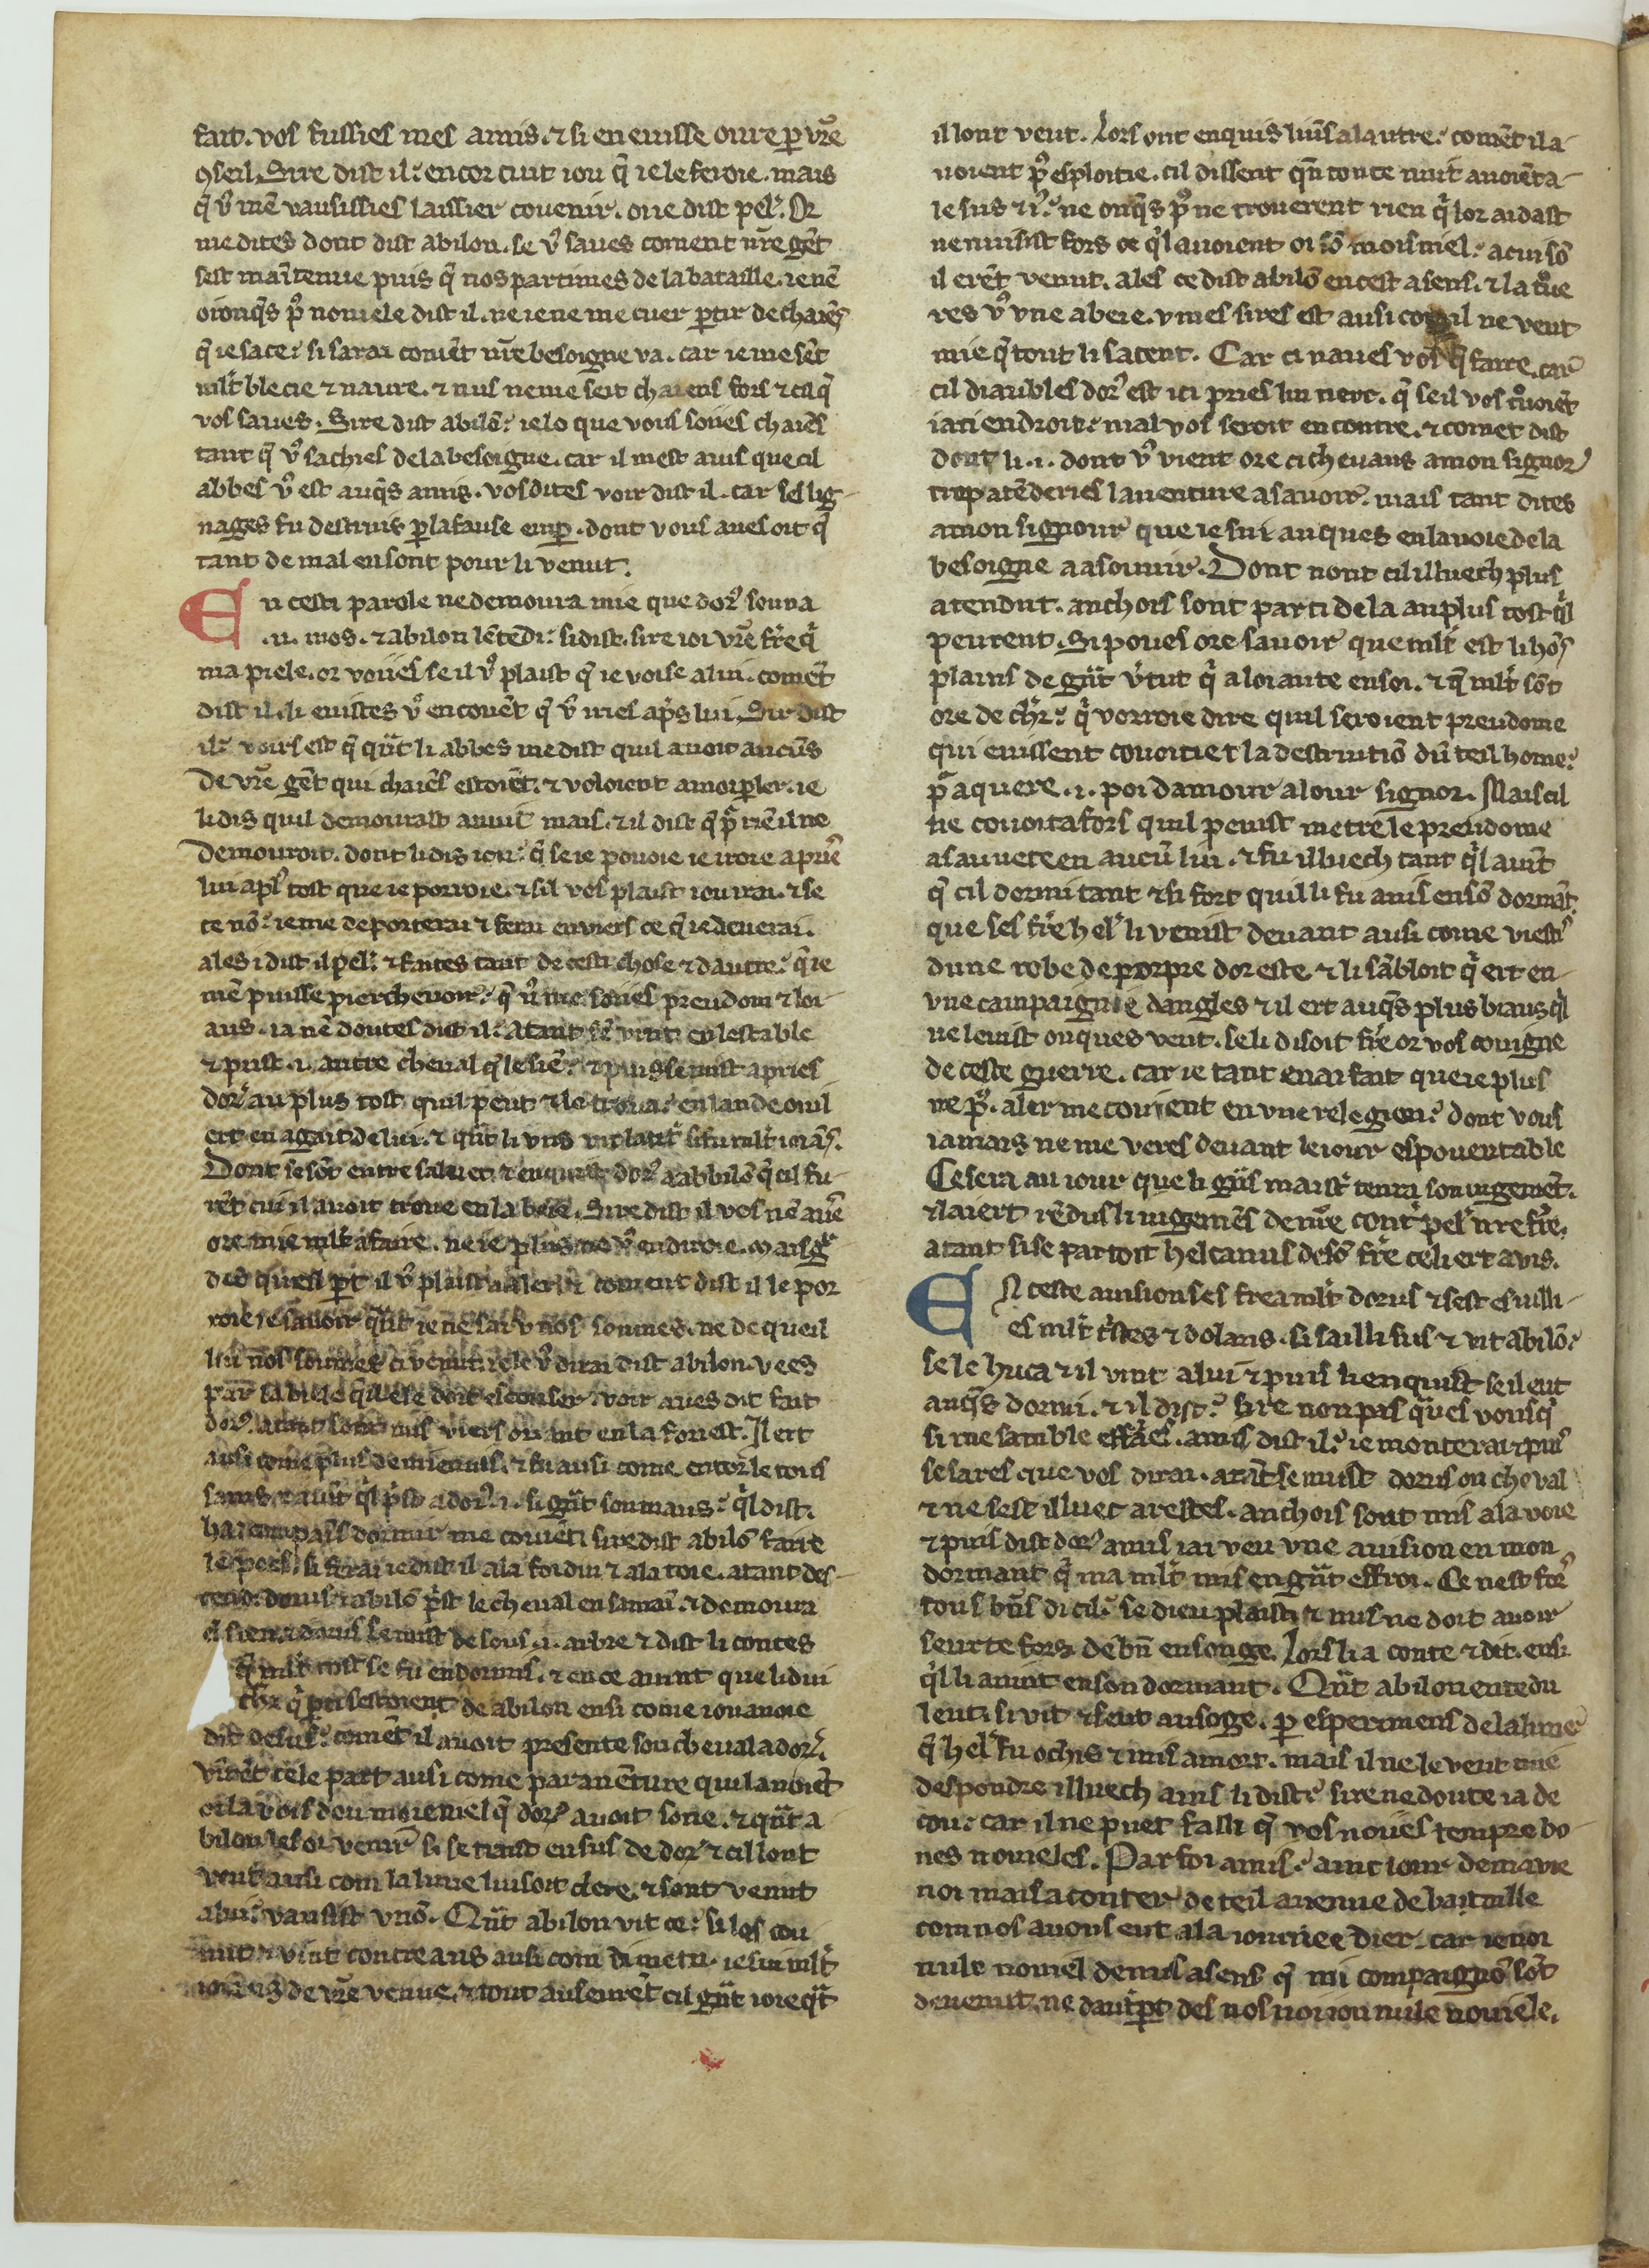 fait. vos fussies mes amis. ⁊ si en euisse ouure p vr̄e
ꝯseil. Sire dist il: encor cuit iou q̄ ie le feroie. mais
q̄ v9 mē vausissies laissier couenir. oue dist pel'. Or
me dites dont dist abilon. se v9 saues coment nr̄e gēt
sest maītenue puis q̄ nos partimes de la bataille. ie nē
oi onq̄s p9 nouuele dist il. ne ie ne me cuer ꝑtir de chaiēs
q̄ ie sace: si sarai comēt nr̄e besoigne va. car ie me sēt
mlt' blecie ⁊ naure. ⁊ nus ne me seit chaiens fors ⁊ cil q̄
vos saues. Sire dist abilō: ie lo que vous soiies chaiēs
tant q̄ v9 sachies de la besoigne. car il mest auis que cil
abbes v9 est auq̄s amis. vos dites voir dist il. car ses lig-
nages fu destruis ꝑ la fause emꝑ. dont vous aues oit q̄
tant de mal en sont pour li venut.
En cesti parole ne demoura mie que dor9 souna
.ii. mos. ⁊ abilon lētēdi: si dist. sire ioi vr̄e fr̄e q̄
ma piele. or voiies se il v9 plaist q̄ ie voise a lui. comēt
dist il. li euistes v9 en couēt q̄ v9 iries apˢ lui. Sir dist
il: voirs est q̄ qn̄t li abbes me dist quil auoit aucūs
de vr̄e gēt qui chaiēs estoiēt. ⁊ voloient a moi ꝑler. ie
li dis quil demourast anuit mais. ⁊ il dist q̄ pʳ riē il ne
demouroit. dont li dis iou: q̄ se ie pouoie ie iroie apriē
lui aplˢ tost que ie porroie. ⁊ sil vos plaist iou irai. ⁊ se
ce nō: ie me deporterai ⁊ ferai enviers ce q̄ ie deuerai.
ales i dist il pel'. ⁊ faites tant de cesti chose ⁊ dautre: q̄ ie
mē puisse pierchevoir: q̄ v9 me soiies preudom ⁊ loi-
aus. ia nē doutes dist il: atant sē vint en lestable
⁊ prist .i. autre cheual q̄ le siē: ⁊ puis se mist apries
dor9 au plus tost quil peut ⁊ le troua: en lande ou il
ert en agait de lui. ⁊ qn̄t li vns vit lautʳ si fu mlt' ioiās.
Dont se sōt entre saluet. ⁊ enquist dor9 a abbilō q̄ cil fu-
rēt cui il auoit troue en labeie. Sire dist il vos nē aues
ore mie mlt' a faire. ne ie plus ne v9 en diroie. mais gʳ
died quel ꝑt il v9 plaist a aler: ⁊ coment dist il le por
roie ie sauoir qn̄t ie ne sai v nos sonmes. ne de queil
liu nos sonmes ci venut. ie le v9 dirai dist abilon. vees
par la bise q̄le se doit esconser. voir aues dit fait
dor9. atant sont mis viers oriant en la forest. Il ert
ausi come plus de mienuis. ⁊ fu ausi come entor le tens
sains. ⁊ auīt q̄l p'st a dor9 .i. si gn̄t sonmaus: q̄l dist.
hai compaīs dormir me couiēt. sire dist abilō faire
le poes. si ferai ie dist il a la foi diu ⁊ a la toie. atant des-
cend. dorus. ⁊ abilō p̄st le cheual en sa maī. ⁊ demoura
q̄ sien. ⁊ dorus se mist desous .i. arbre ⁊ dist li contes
q̄ mlt' tost se fu endormis. ⁊ en ce auint que li dui
chʳ q̄ ꝑti sestoient de abilon ensi come iou auoie
dit desus: comēt il auoit presente son cheual a dor9.
vīrēt cele part ausi come par auēture quil auoiēt
oi la vois dou moieniel q̄ dor9 auoit sone. ⁊ qn̄t a-
bilon les oi venir si se traist ensus de dor9 ⁊ cil lont
veut ausi com la lune luisoit clere. ⁊ sont venut
a lui: vausist v nō. Qn̄t abilon vit ce: si les cou
nut ⁊ vint contre aus ausi com di metu. ie sui mlt'
ioians de vr̄e venue. ⁊ tout auseurēt cil gn̄t ioie qn̄t
il lont veut. Lors ont enquis li ūs a lautre: comēt il a-
uoient p9 esploitie. cil dissent qn̄ toute nuit auoiēt a-
le sus ⁊ i9: ne onq̄s p9 ne trouerent rien q̄ lor aidast
ne nuisist fors ce q̄l auoient oi sō moisniel: a cui sō
il erēt venut. ales ce dist abilō en cest asens. ⁊ la tʳue
res v9 vne abeie. v mes sires est ausi com il ne veut
mie q̄ tout li sacent. Car ci naues vos q̄ faire. car
cil diaubles dor9 est ici pries lui nerc. q̄ se il vos tʳuoiēt
iaci endroit: mal vos seroit encontre. ⁊ comēt dist
dont li .i. dont v9 vient ore ci cheuaus a mon signor
trop atēderies lauenture a sauoir. mais tant dites
a mon signour que ie sui auques en la uoie de la
besoigne a asouuir. Dont nont cil illuech plus
atendut. anchois sont parti de la au plus tost q̄l
peurent. Si poues ore sauoir que mlt' est li hōs
plains de gn̄t v'tut q̄ a loiaute en soi. ⁊ q̄ mlt' sōt
ore de chʳ: q̄ vorroie dire quil seroient preudome
qui euissent couoitiet la destruitiō dū teil home:
pʳ aquere .i. poi damour a lour signor. Mais cil
ne couoita fors quil peuist metre le preudome
a sauuete en aucū liu. ⁊ fu illuech tant q̄l auīt
q̄ cil dormi tant ⁊ si fort quil li fu auis en sō dormāt.
que ses fr̄e hel' li venist deuant ausi come viestˢ
dune robe de porpre dor este ⁊ li sābloit q̄ ert en-
vne campaignie dangles ⁊ il ert auq̄s plus biaus q̄l
ne leuist onques veut. se li disoit fr̄e or vos couigne
de ceste guerre. car ie tant en ai fait que ie plus
ne p9. aler me couient en vne relegion: dont vous
iamais ne me veres deuant le iour espouentable
Ce sera au iour que li gn̄s maistʳ tenra son iugemēt.
⁊ la iert rēdus li iugemēs de nr̄e contʳ pel' nr̄e fr̄e.
atant si se partoit helcanus de sō fr̄e ce li ert auis.
EN ceste auision ses frea mlt' dorus ⁊ sest esuilli-
es mlt' tˢstes ⁊ dolans. si sailli sus ⁊ vit abilō:
se le huca ⁊ il vint a lui ⁊ puis li enquist se il eut
auq̄s dormi. ⁊ il dist: sire non pas q̄ues vous q̄
si me samble effrāes. amis dist il: ie monterai ⁊ puis
se sares que vos dirai. atāt se mist dorus ou cheval
⁊ ne sest illuec arestes. anchois sont mis a la voie
⁊ puis dist dor9 amis iai veu vne auision en mon
dormant q̄ ma mlt' mis en gn̄t effroi. Ce nest fors
tous bn̄s di cil: se dieu plaist: ⁊ nus ne doit auoir
seurte fors de bn̄ en songe. Lors li a conte ⁊ dit. ensi
q̄l li auint en son dormant. Qn̄t abilon entēdu
leut: si vit ⁊ seut au soge. ꝑ esperimens de la lune:
q̄ hel' fu ochis ⁊ mis a mort. mais il ne le veut mie
despondre illuech ains li dist: sire ne doute ia de
cou: car il ne puet falir q̄ vos noiies tempre bo-
nes nouueles. Par foi amis: ainc iour de ma vie
noi mais aconter de teil auenue de bataille
com nos auons eut a la iournee dier. car ie noi
nule nouuel de nus asens q̄ mi compaignō sōt
deuenut. ne dautʳ ꝑt des nos noi iou nule nouuele.